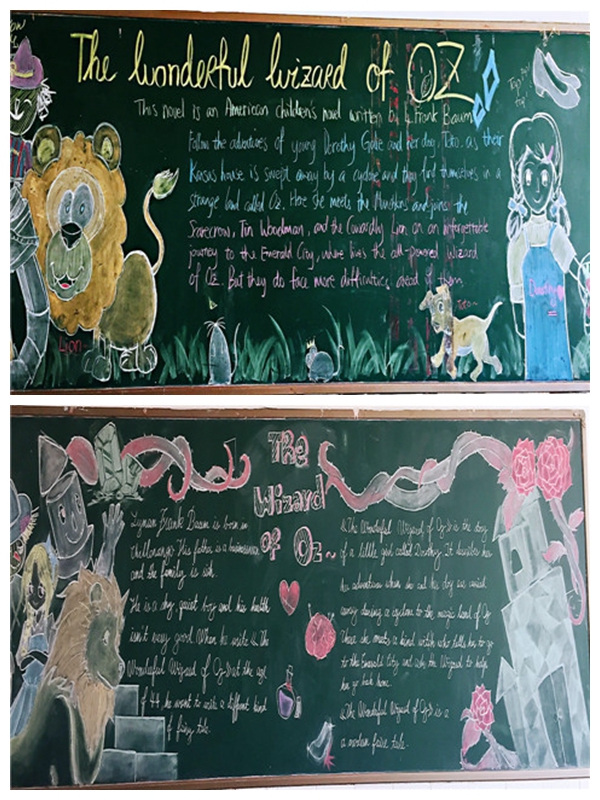 The Wonderful Wizard of OZ
This novel is an American children's novel written by L Frank Baum
Follow the adventures of young Dorothy Gale and her dog, Toto. as their
Kansas house is swept away by a cyclone and they find themselves in a
strange land called Oz. Here she meets the Munchkins and joins the
Scarecrow, Tin Woodman, and the Cowardly Lion on an unforgettable
journey to the Emerald City, where lives the all-powered Wizard
of Oz. But they do face more difficulties ahead of them.
Toto
Lion
Dorothy
The
Wizard
of Oz~
Lyman Frank Baum is born in
His father is a businessman
and the family is rich.
He is a shy quiet boy and his health
isn't very good. When he write 《The
Wonderful Wizard of Oz》 at the age
of 44, he want to write a different kind
of fairy tale.
《The Wonderful Wizard of Oz》 is the story
of a little girl called Dorothy. It describes her
adventures when she and the dog are carried
away during a cyclone to the magic land of Oz
There she meets a kind witch who tells her to go
to the Emerald City and ask the Wizard to help
her go back home.
《The Wonderful Wizard of Oz》 is a
a modern fairy tale.